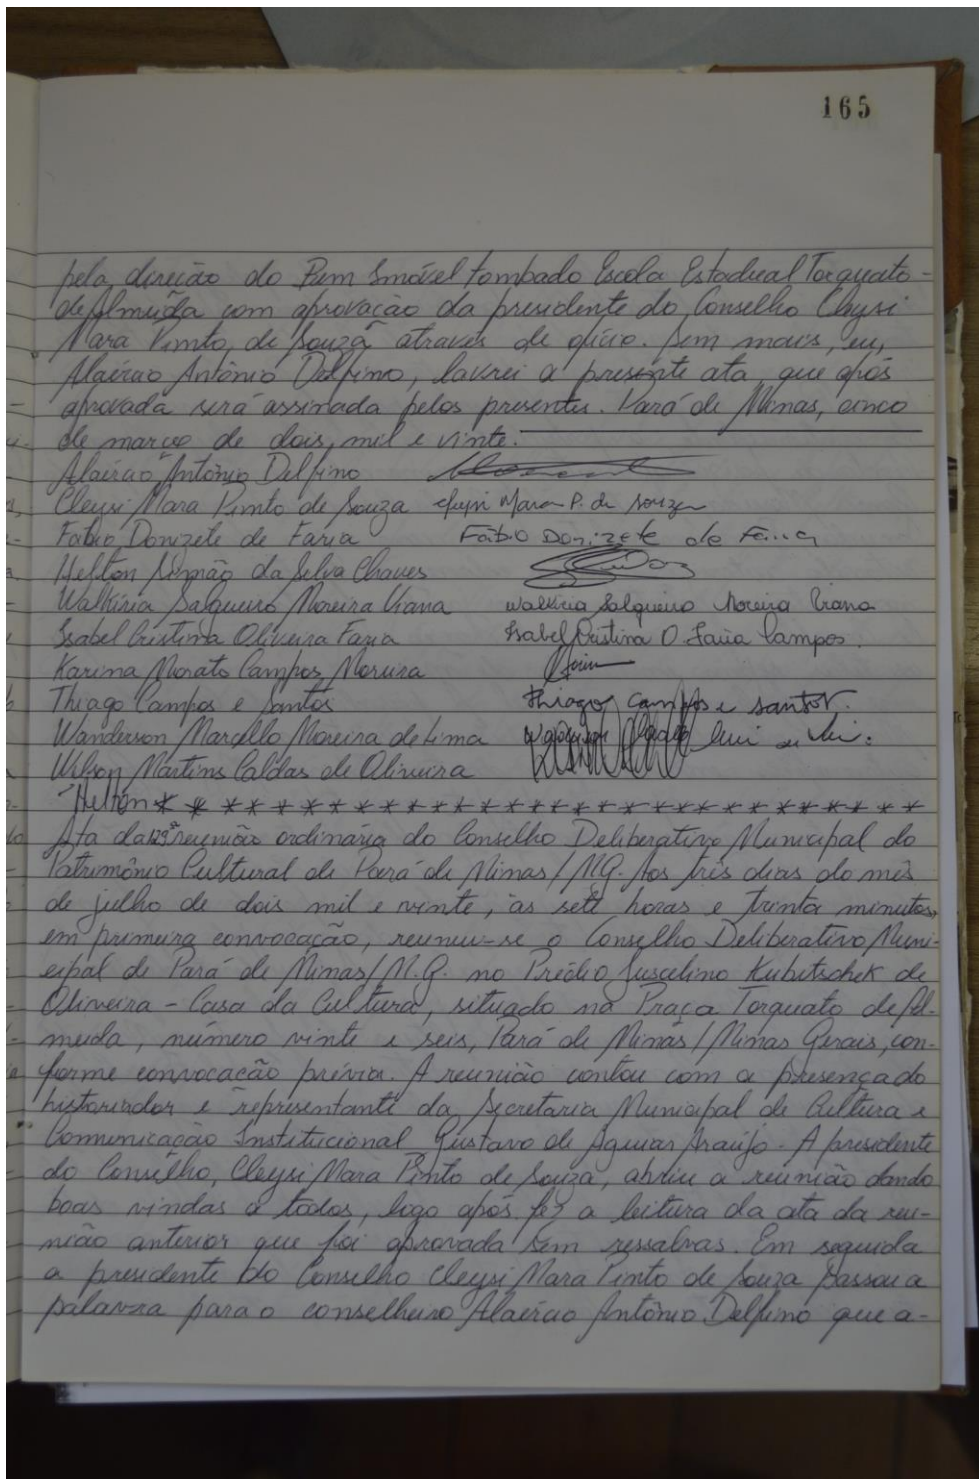 165
pela direção do Bem Imóvel tombado Escola Estadual Torquato
de Almeida com aprovação da presidente do Conselho Cleysi
Mara Pinto de Souza através de ofício. Sem mais, eu,
Alaércio Antônio Delfino, lavrei a presente ata, que após
aprovada será assinada pelos presentes. Pará de Minas, cinco
de março de dois mil e vinte.
Alaércio Antônio Delfino
Cleysi Mara Pinto de Souza Cleysi Mara P. de Souza
Fábio Donizete de Faria Fábio Donizete de Faria
Helton Simão da Silva Chaves
Walkíria Salgueiro Moreira Viana Walkiria Salgueiro Moreira Viana
Isabel Cristina Oliveira Faria Isabel Cristina O Faria Campos.
Karina Morato Campos Moreira
Thiago Campos e Santos Thiago Campos e Santos.
Wanderson Marcello Moreira de Lima
Wilson Martins Caldas de Oliveira
Helton * * * * * * * * * * * * * * * * * * * * * * * * * * *
Ata da 129ª reunião ordinária do Conselho Deliberativo Municipal do
Patrimônio Cultural de Pará de Minas/MG. Aos três dias do mês
de julho de dois mil e vinte, às sete horas e trinta minutos,
em primeira convocação, reuniu-se o Conselho Deliberativo Muni-
cipal de Pará de Minas/M.G. no Prédio Juscelino Kubitschek de
Oliveira - Casa da Cultura, situado na Praça Torquato de Al-
meida, número vinte e seis, Pará de Minas/Minas Gerais, con-
forme convocação prévia. A reunião contou com a presença do
historiador e representante da Secretaria Municipal de Cultura e
Comunicação Institucional Gustavo de Aguiar Araújo. A presidente
do Conselho, Cleysi Mara Pinto de Souza, abriu a reunião dando
boas vindas a todos, logo após fez a leitura da ata da reu-
nião anterior que foi aprovada sem ressalvas. Em seguida
a presidente do Conselho Cleysi Mara Pinto de Souza passou a
palavra para o conselheiro Alaércio Antônio Delfino que a-